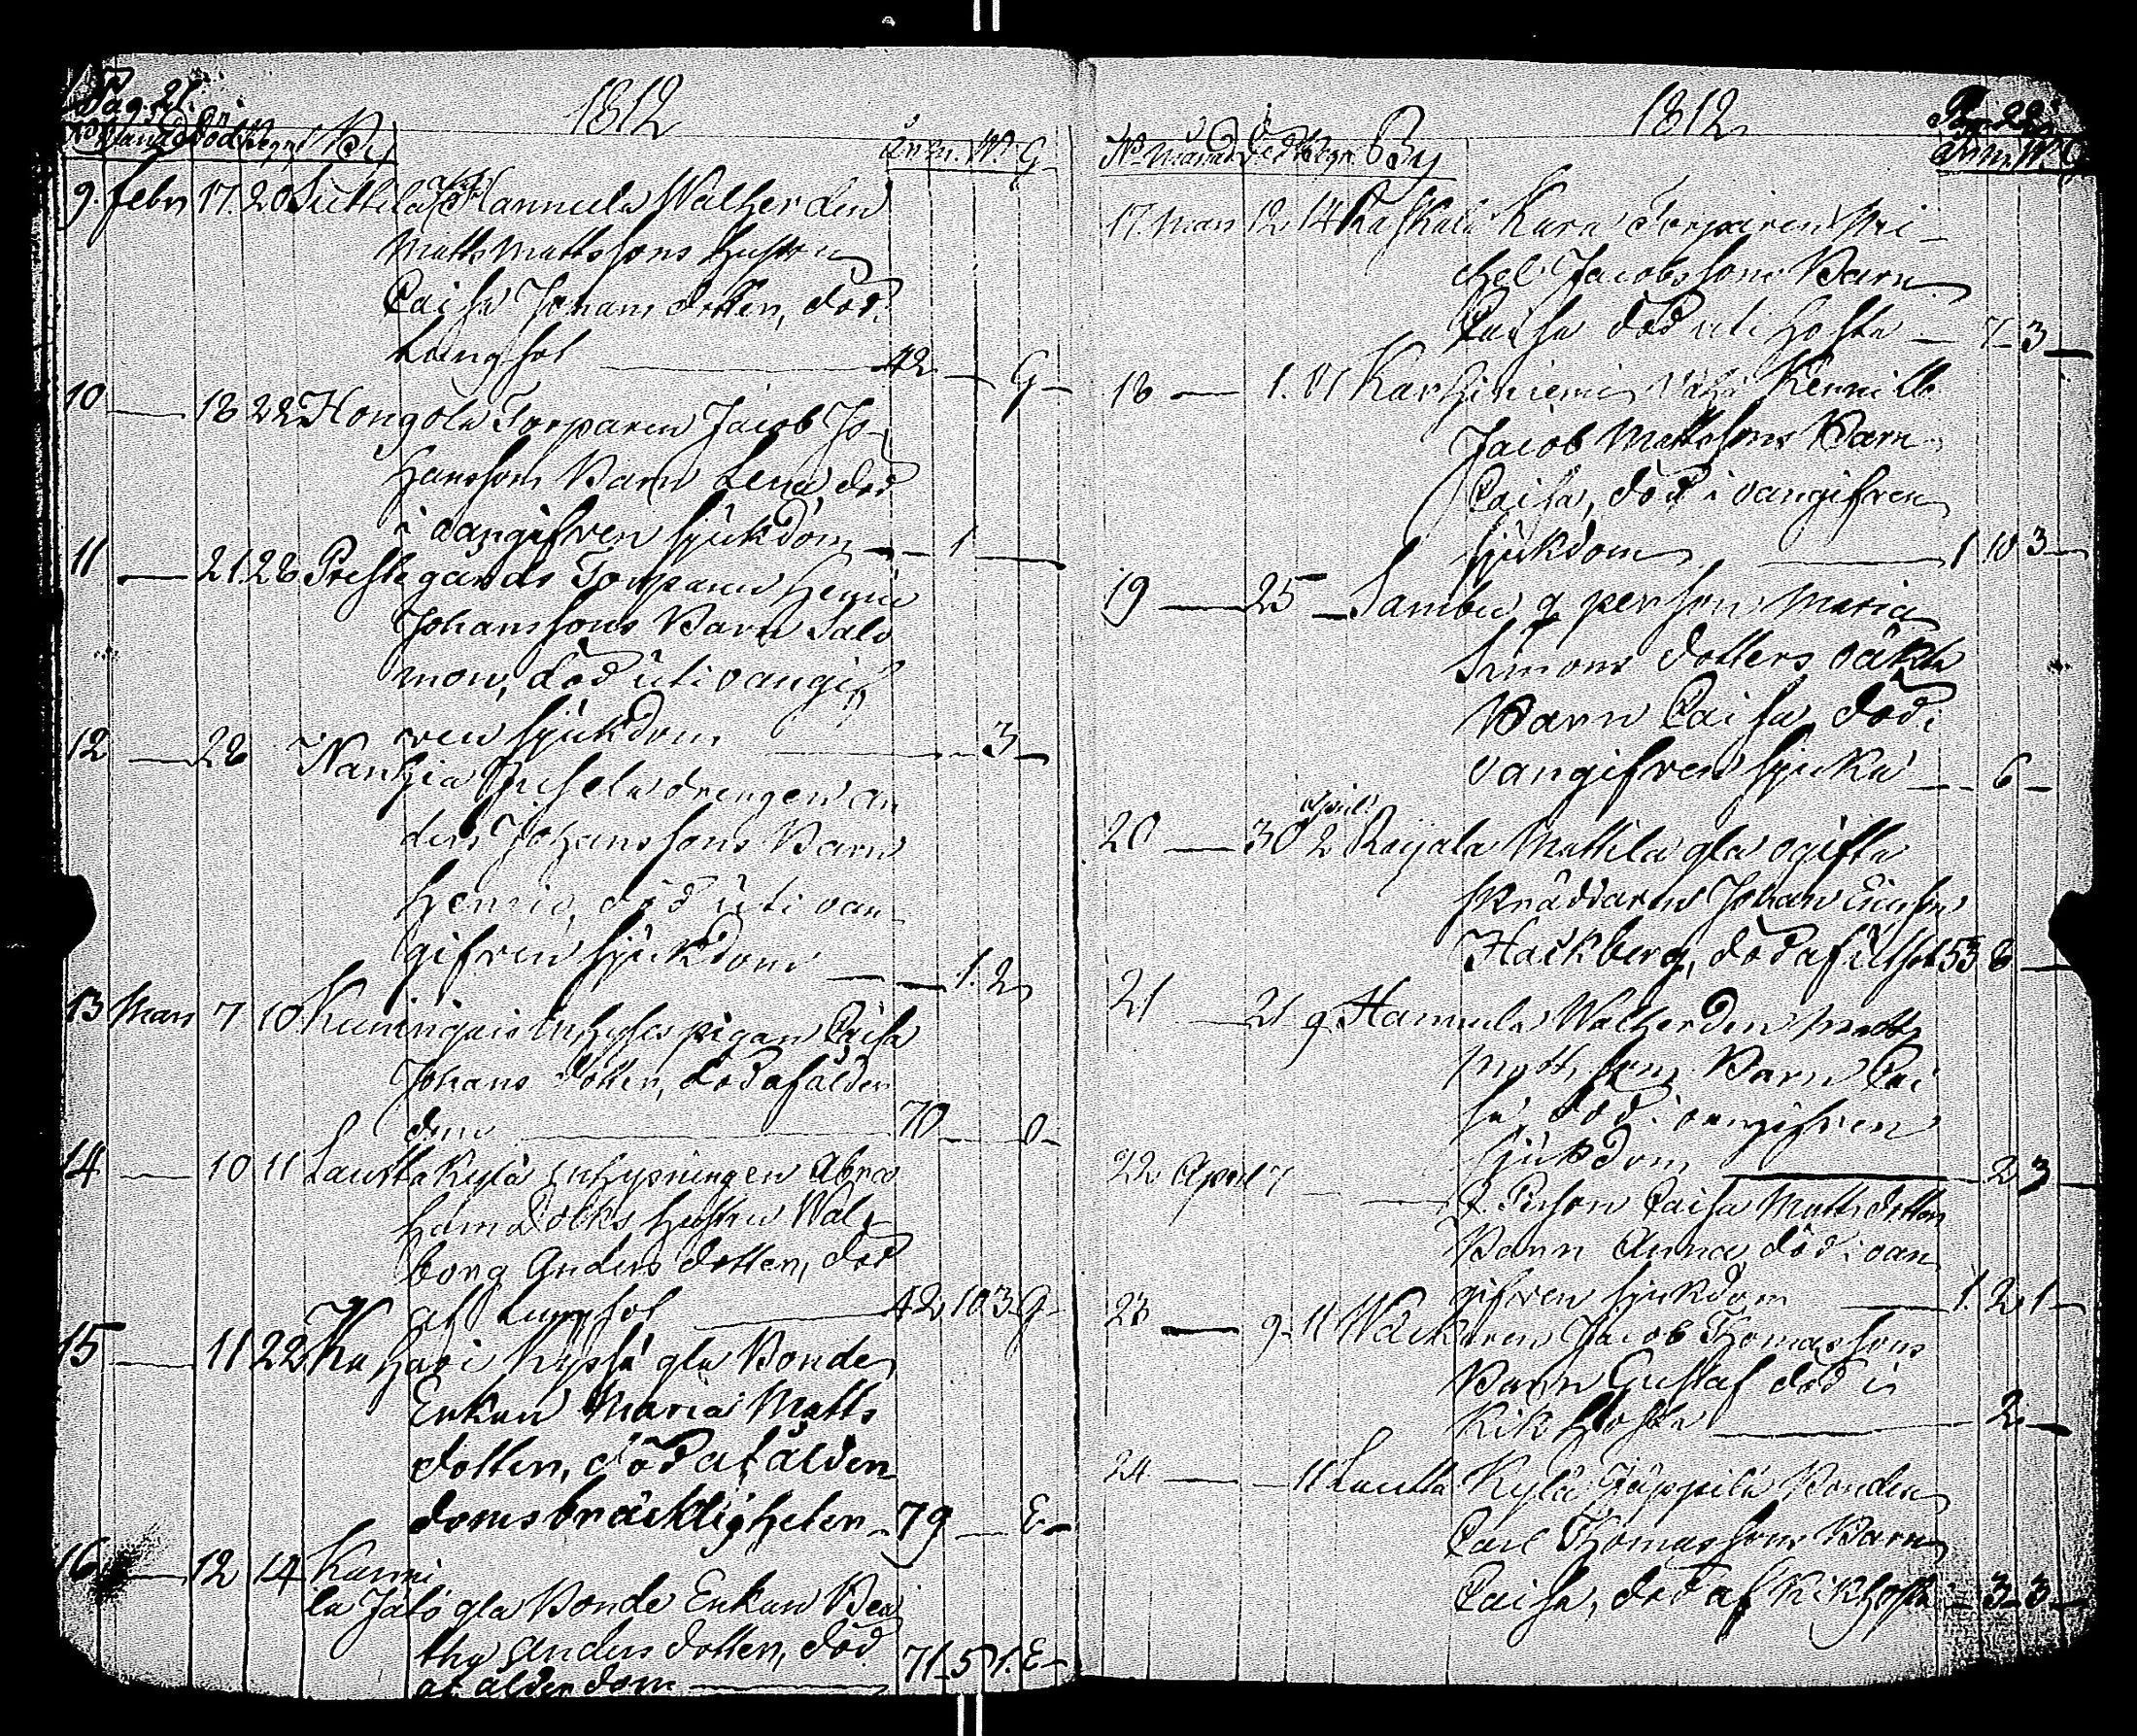 Pag. 21.
1812
No Månad Död Begr. By
År. M. W. G
9. Febr 17. 20 Suttila Hannula Walherden
Matts Mattssons Hustru
Caisa Johans dotter, död i
Lungsot 42 G
10 18 22 Hongola Torparen Jacob Jo-
hanssons Barn Lena, död
i oangifven sjukdom 1
11 21. 28 Prestegårds Torparen Henric
Johanssons Barn Salo
mon, död uti oangif
ven sjukdom 3
12 28 drengen An
ders Johanssons Barn
Henric, död uti oan
gifven sjukdom 1. 2
13 Mars 7 10 Inhyses pigan Caisa
Johans dotter, död af ålder
dom 70 O
14 10 11 Lautta Kylä Inhysningen Abra
ham Hustru Wal-
borg Anders dotter, död
af Lungsot 42 10 3 G
15 11 22 Kuhari gla Bonde
Enkan Maria Matts
dotter, död af ålder
doms bräckligheter 79 E
16 12 14 Karvi
la Jalo gla Bonde Enkan Bea
tha Anders dotter, död
af ålderdom 71 5 1. E
1812
Pag. 22
No Månad Död Begr. By
År M W G
17. Mars 12 14 Kaskala Kara Torparen Mi-
chel Jacobssons Barn
Caisa död uti Hosta 7 3
18 1. Karhiniemi
Jacob Mattssons Barn
Caisa, död i oangifven
sjukdom 1 10 3
19 25 Sambu q person Maria
Simons dotters oäkta
Barn Caisa, död i
oangifven sjuka 6
20 30 April 2 Raijala Mattila gla ogifta
skräddaren Johan Ericsson
Hackberg, död af 53 8
21 21 9 Hannula Walherden Matts
Mattssons Barn Cai
sa, död i oangifven
sjukdom 2 3
22 April 7 Q. Person Caisa Matts dotters
Barn Anna död i oan
gifven sjukdom 1. 2 1
23 9 11 Jacob Thomassons
Barn Gustaf död i
Kikhosta 2
24 11 Lautta Kylä Jäppilä Bonden
Carl Thomassons Barn
Caisa, död af Kikhosta 3 3